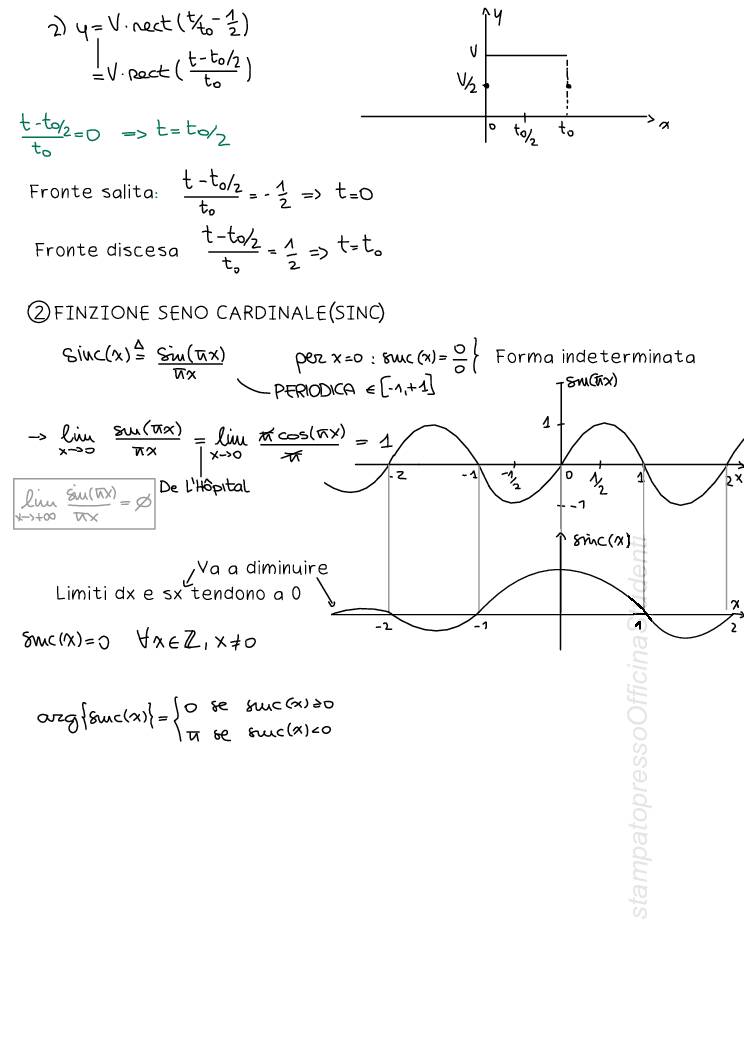 2) y = V·rect(t/t₀ - 1/2)
= V·rect((t-t₀/2)/t₀)
y
V
V/2
0 t₀/2 t₀ x
(t-t₀/2)/t₀ = 0 => t = t₀/2
Fronte salita: (t-t₀/2)/t₀ = -1/2 => t=0
Fronte discesa (t-t₀/2)/t₀ = 1/2 => t=t₀
② FINZIONE SENO CARDINALE(SINC)
sinc(x) ≜ sin(πx)/πx per x=0 : sinc(x) = 0/0 } Forma indeterminata
PERIODICA ∈ [-1,+1]
sin(πx)
1
→ lim x→0 sin(πx)/πx = lim x→0 π cos(πx)/π = 1
-2 -1 -1/2 0 1/2 1 2 x
De L'Hôpital
lim x→+∞ sin(πx)/πx = ∅
-1
sinc(x)
Va a diminuire
Limiti dx e sx tendono a 0
x
-2 -1 1 2
sinc(x)=0 ∀x∈ℤ, x≠0
arg{sinc(x)} = { 0 se sinc(x)≥0
π se sinc(x)<0
stampatopressoOfficinaStudenti